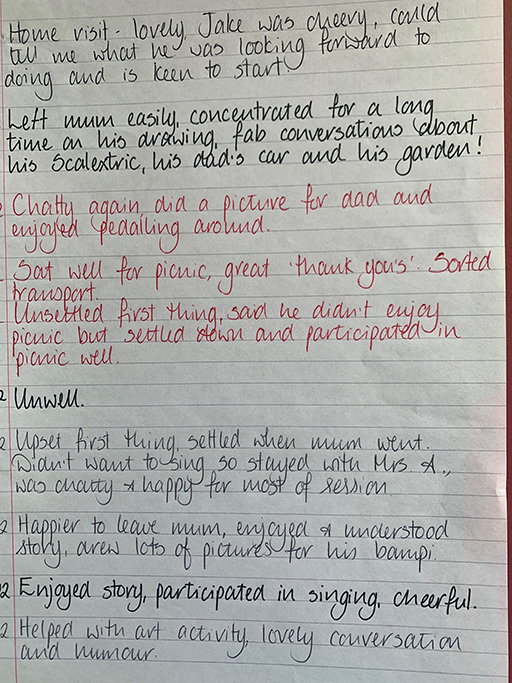 Home visit - lovely, Jake was cheery, could
tell me what he was looking forward to
doing and is keen to start.
Left mum easily, concentrated for a long
time on his drawing, fab conversations about
his Scalextric, his dad's car and his garden!
2 Chatty again, did a picture for dad and
enjoyed pedalling around.
Sat well for picnic, great 'thank you's'. Sorted
transport.
Unsettled first thing, said he didn't enjoy
picnic but settled down and participated in
picnic well.
2 Unwell.
2 Upset first thing, settled when mum went.
Didn't want to sing so stayed with Mrs. A.,
was chatty & happy for most of session
2 Happier to leave mum, enjoyed & understood
story, drew lots of pictures for his bampi.
2 Enjoyed story, participated in singing, cheerful.
2 Helped with art activity, lovely conversation
and humour.